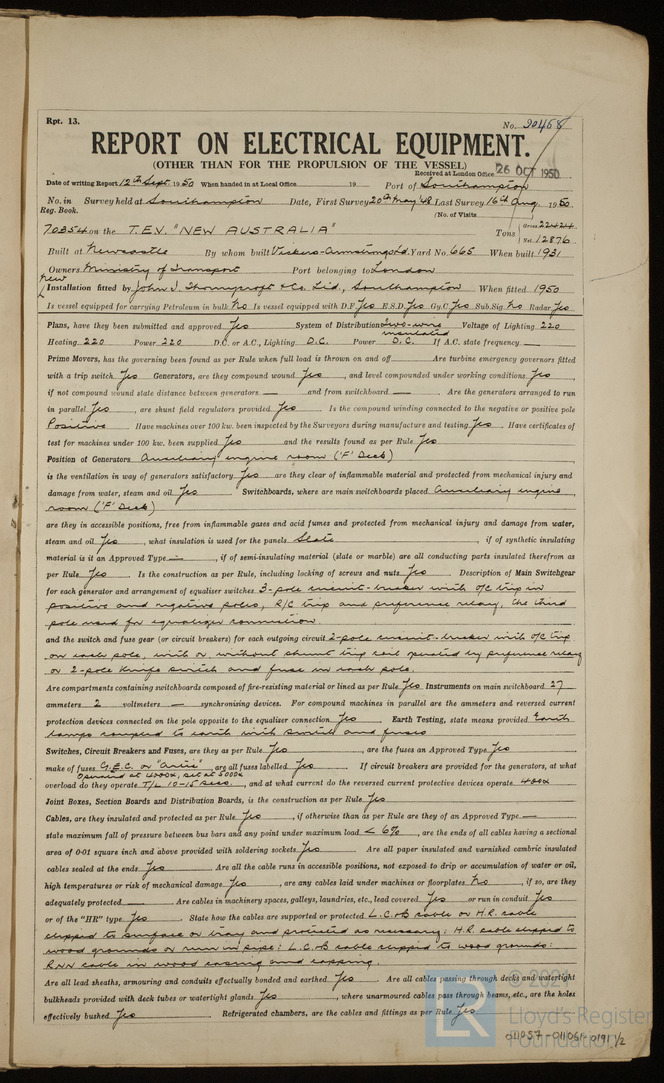 Rpt. 13.
No. 20458
REPORT ON ELECTRICAL EQUIPMENT.
(OTHER THAN FOR THE PROPULSION OF THE VESSEL)
Received at London Office 26 OCT 1950
Date of writing Report 12th Sept. 1950 When handed in at Local Office 19 Port of Southampton
No. in Reg. Book. Survey held at Southampton Date, First Survey 20th May 48 Last Survey 16th Aug. 1950
(No. of Visits
70354 on the T.E.V. "NEW AUSTRALIA" Tons Gross Net 12876
Built at Newcastle By whom built Vickers-Armstrong Ld. Yard No. 665 When built 1931
Owners Ministry of Transport Port belonging to London
New Installation fitted by John I. Thornycroft & Co. Ltd., Southampton When fitted 1950
Is vessel equipped for carrying Petroleum in bulk No Is vessel equipped with D.F. Yes E.S.D. Yes Gy.C. Yes Sub.Sig. No Radar Yes
Plans, have they been submitted and approved Yes System of Distribution Two-wire insulated Voltage of Lighting 220
Heating 220 Power 220 D.C. or A.C., Lighting D.C. Power D.C. If A.C. state frequency —
Prime Movers, has the governing been found as per Rule when full load is thrown on and off Are turbine emergency governors fitted
with a trip switch Yes Generators, are they compound wound Yes, and level compounded under working conditions Yes,
if not compound wound state distance between generators — and from switchboard —. Are the generators arranged to run
in parallel Yes, are shunt field regulators provided Yes. Is the compound winding connected to the negative or positive pole
Positive Have machines over 100 kw. been inspected by the Surveyors during manufacture and testing Yes. Have certificates of
test for machines under 100 kw. been supplied Yes and the results found as per Rule Yes
Position of Generators Auxiliary engine room ('F' Deck)
is the ventilation in way of generators satisfactory Yes are they clear of inflammable material and protected from mechanical injury and
damage from water, steam and oil Yes. Switchboards, where are main switchboards placed Auxiliary engine
room ('F' Deck)
are they in accessible positions, free from inflammable gases and acid fumes and protected from mechanical injury and damage from water,
steam and oil Yes, what insulation is used for the panels Slate, if of synthetic insulating
material is it an Approved Type —, if of semi-insulating material (slate or marble) are all conducting parts insulated therefrom as
per Rule Yes Is the construction as per Rule, including locking of screws and nuts Yes Description of Main Switchgear
for each generator and arrangement of equaliser switches 3-pole circuit-breaker with o/c trip in
positive and negative poles, R/C trip and preference relay, the third
pole used for equaliser connection
and the switch and fuse gear (or circuit breakers) for each outgoing circuit 2-pole circuit-breaker with o/c trip
on each pole, with or without shunt trip coil operated by preference relay
or 2-pole knife switch and fuse in each pole.
Are compartments containing switchboards composed of fire-resisting material or lined as per Rule Yes Instruments on main switchboard 27
ammeters 2 voltmeters — synchronising devices. For compound machines in parallel are the ammeters and reversed current
protection devices connected on the pole opposite to the equaliser connection Yes Earth Testing, state means provided Earth
lamps coupled to earth with switch and fuses
Switches, Circuit Breakers and Fuses, are they as per Rule Yes, are the fuses an Approved Type Yes
make of fuses G.E.C. or "Aeric" are all fuses labelled Yes If circuit breakers are provided for the generators, at what
overload do they operate Operated at 4000A, set at 5000A T/L 10-15 secs., and at what current do the reversed current protective devices operate 400A
Joint Boxes, Section Boards and Distribution Boards, is the construction as per Rule Yes
Cables, are they insulated and protected as per Rule Yes, if otherwise than as per Rule are they of an Approved Type —
state maximum fall of pressure between bus bars and any point under maximum load < 6%, are the ends of all cables having a sectional
area of 0·01 square inch and above provided with soldering sockets Yes. Are all paper insulated and varnished cambric insulated
cables sealed at the ends Yes Are all the cable runs in accessible positions, not exposed to drip or accumulation of water or oil,
high temperatures or risk of mechanical damage Yes, are any cables laid under machines or floorplates No, if so, are they
adequately protected — Are cables in machinery spaces, galleys, laundries, etc., lead covered Yes or run in conduit Yes
or of the "HR" type Yes State how the cables are supported or protected L.C.&B. cable or H.R. cable
clipped to surface or tray and protected as necessary; H.R. cable clipped to
wood grounds or run in pipe; L.C.&B cable clipped to wood grounds;
cable in wood casing and capping.
Are all lead sheaths, armouring and conduits effectually bonded and earthed Yes Are all cables passing through decks and watertight
bulkheads provided with deck tubes or watertight glands Yes, where unarmoured cables pass through beams, etc., are the holes
effectively bushed Yes Refrigerated chambers, are the cables and fittings as per Rule Yes
LR © 2021 Lloyd's Register Foundation
011057-011061-0191 1/2